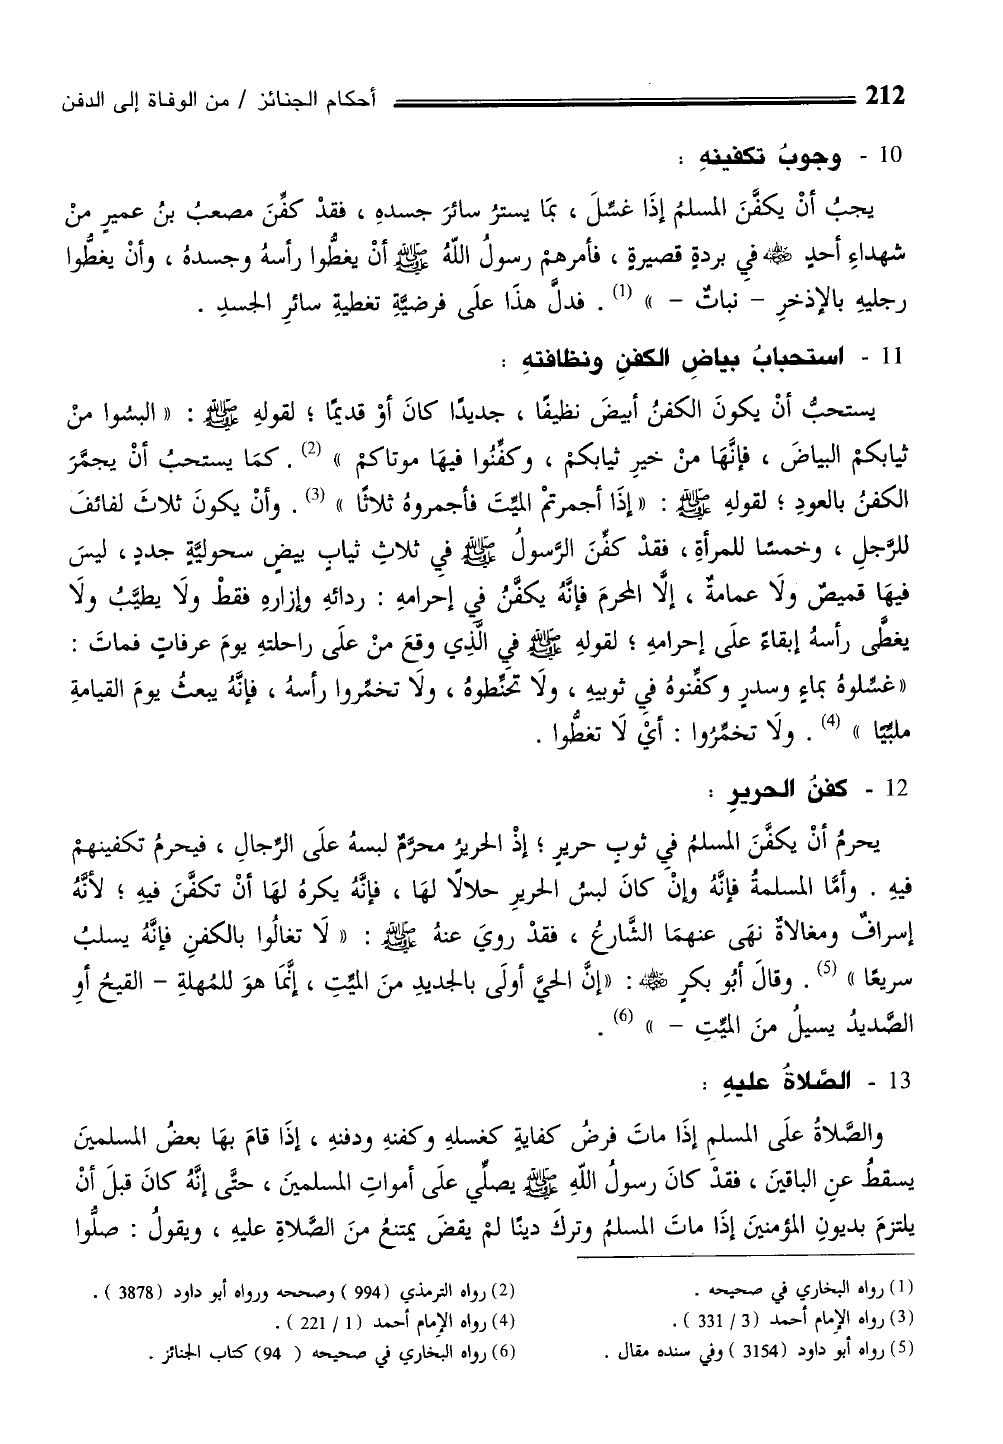 212 أحكام الجنائز / من الوفاة إلى الدفن
10 - وجوبُ تكفينهِ :
يجبُ أنْ يكفَّنَ المسلمُ إذَا غسِّلَ ، بمَا يسترُ سائرَ جسدهِ ، فقدْ كفِّنَ مصعبُ بنُ عميرٍ منْ
شهداءِ أحدٍ ﵁ في بردةٍ قصيرةٍ ، فأمرهمْ رسولُ اللَّهِ ﷺ أنْ يغطُّوا رأسهُ وجسدهُ ، وأنْ يغطُّوا
رجليهِ بالإذخرِ – نباتٌ – » (1) . فدلَّ هذَا علَى فرضيَّةِ تغطيةِ سائرِ الجسدِ .
11 - استحبابُ بياضِ الكفنِ ونظافتهِ :
يستحبُّ أنْ يكونَ الكفنُ أبيضَ نظيفًا ، جديدًا كانَ أوْ قديمًا ؛ لقولهِ ﷺ : « البسُوا منْ
ثيابكمْ البياضَ ، فإنَّهَا منْ خيرِ ثيابكمْ ، وكفِّنُوا فيهَا موتاكمْ » (2) . كمَا يستحبُ أنْ يجمَّرَ
الكفنُ بالعودِ ؛ لقولهِ ﷺ : « إذَا أجمرتمْ الميِّتَ فأجمروهُ ثلاثًا » (3) . وأنْ يكونَ ثلاثَ لفائفَ
للرَّجلِ ، وخمسًا للمرأةِ ، فقدْ كفِّنَ الرَّسولُ ﷺ في ثلاثِ ثيابٍ بيضٍ سحوليَّةٍ جددٍ ، ليسَ
فيهَا قميصٌ ولَا عمامةٌ ، إلَّا المحرمَ فإنَّهُ يكفَّنُ في إحرامهِ : ردائهِ وإزارهِ فقطْ ولَا يطيَّبُ ولَا
يغطَّى رأسهُ إبقاءً علَى إحرامهِ ؛ لقولهِ ﷺ في الَّذِي وقعَ منْ علَى راحلتهِ يومَ عرفاتٍ فماتَ :
« غسِّلوهُ بماءٍ وسدرٍ وكفِّنوهُ في ثوبيهِ ، ولَا تحنِّطوهُ ، ولَا تخمِّروا رأسهُ ، فإنَّهُ يبعثُ يومَ القيامةِ
ملبِّيًا » (4) . ولَا تخمِّرُوا : أيْ لَا تغطُّوا .
12 - كفنُ الحريرِ :
يحرمُ أنْ يكفَّنَ المسلمُ في ثوبِ حريرٍ ؛ إذْ الحريرُ محرَّمٌ لبسهُ علَى الرِّجالِ ، فيحرمُ تكفينهمْ
فيهِ . وأمَّا المسلمةُ فإنَّهُ وإنْ كانَ لبسُ الحريرِ حلالًا لهَا ، فإنَّهُ يكرهُ لهَا أنْ تكفَّنَ فيهِ ؛ لأنَّهُ
إسرافٌ ومغالاةٌ نهَى عنهمَا الشَّارعُ ، فقدْ رويَ عنهُ ﷺ : « لَا تغالُوا بالكفنِ فإنَّهُ يسلبُ
سريعًا » (5) . وقالَ أبُو بكرٍ ﵁ : « إنَّ الحيَّ أولَى بالجديدِ منَ الميِّتِ ، إنَّمَا هوَ للمُهلةِ – القيحُ أوِ
الصَّديدُ يسيلُ منَ الميِّتِ – » (6) .
13 - الصَّلاةُ عليهِ :
والصَّلاةُ علَى المسلمِ إذَا ماتَ فرضُ كفايةٍ كغسلهِ وكفنهِ ودفنهِ ، إذَا قامَ بهَا بعضُ المسلمينَ
يسقطُ عنِ الباقينَ ، فقدْ كانَ رسولُ اللَّهِ ﷺ يصلِّي علَى أمواتِ المسلمينَ ، حتَّى إنَّهُ كانَ قبلَ أنْ
يلتزمَ بديونِ المؤمنينَ إذَا ماتَ المسلمُ وتركَ دينًا لمْ يقضَ يمتنعُ منَ الصَّلاةِ عليهِ ، ويقولُ : صلُّوا
(1) رواه البخاري في صحيحه . (2) رواه الترمذي (994 ) وصححه ورواه أبو داود (3878 ) .
(3) رواه الإمام أحمد (3 / 331 ) . (4) رواه الإمام أحمد (1 / 221 ) .
(5) رواه أبو داود (3154 ) وفي سنده مقال . (6) رواه البخاري في صحيحه ( 94) كتاب الجنائز .